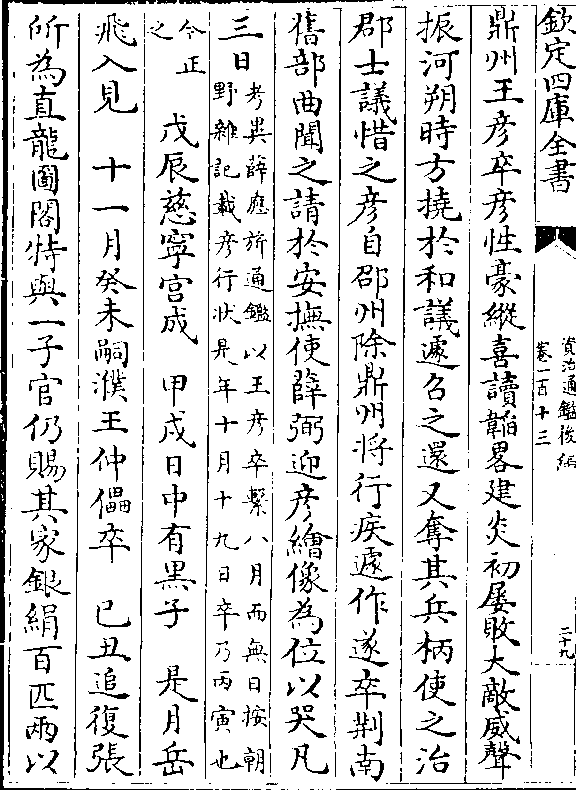 欽定四庫全書
資治通鑑後編
卷一百十三
二十九
鼎州王彦卒彦性豪縱喜讀韜畧建炎初屢敗大敵威聲
振河朔時方撓於和議遽召之還又奪其兵柄使之治
郡士議惜之彦自邵州除鼎州將行疾遽作遂卒荆南
舊部曲聞之請於安撫使薛弼迎彦繪像為位以哭凡
三日
考異薛應旂通鑑以王彦卒繫八月而無日按朝
野雜記載彦行狀是年十月十九日卒乃丙寅也
今正
之
戊辰慈寧宮成　甲戌日中有黒子　是月岳
飛入見　十一月癸未嗣濮王仲儡卒　己丑追復張
所為直龍圖閣特與一子官仍賜其家銀絹百匹兩以